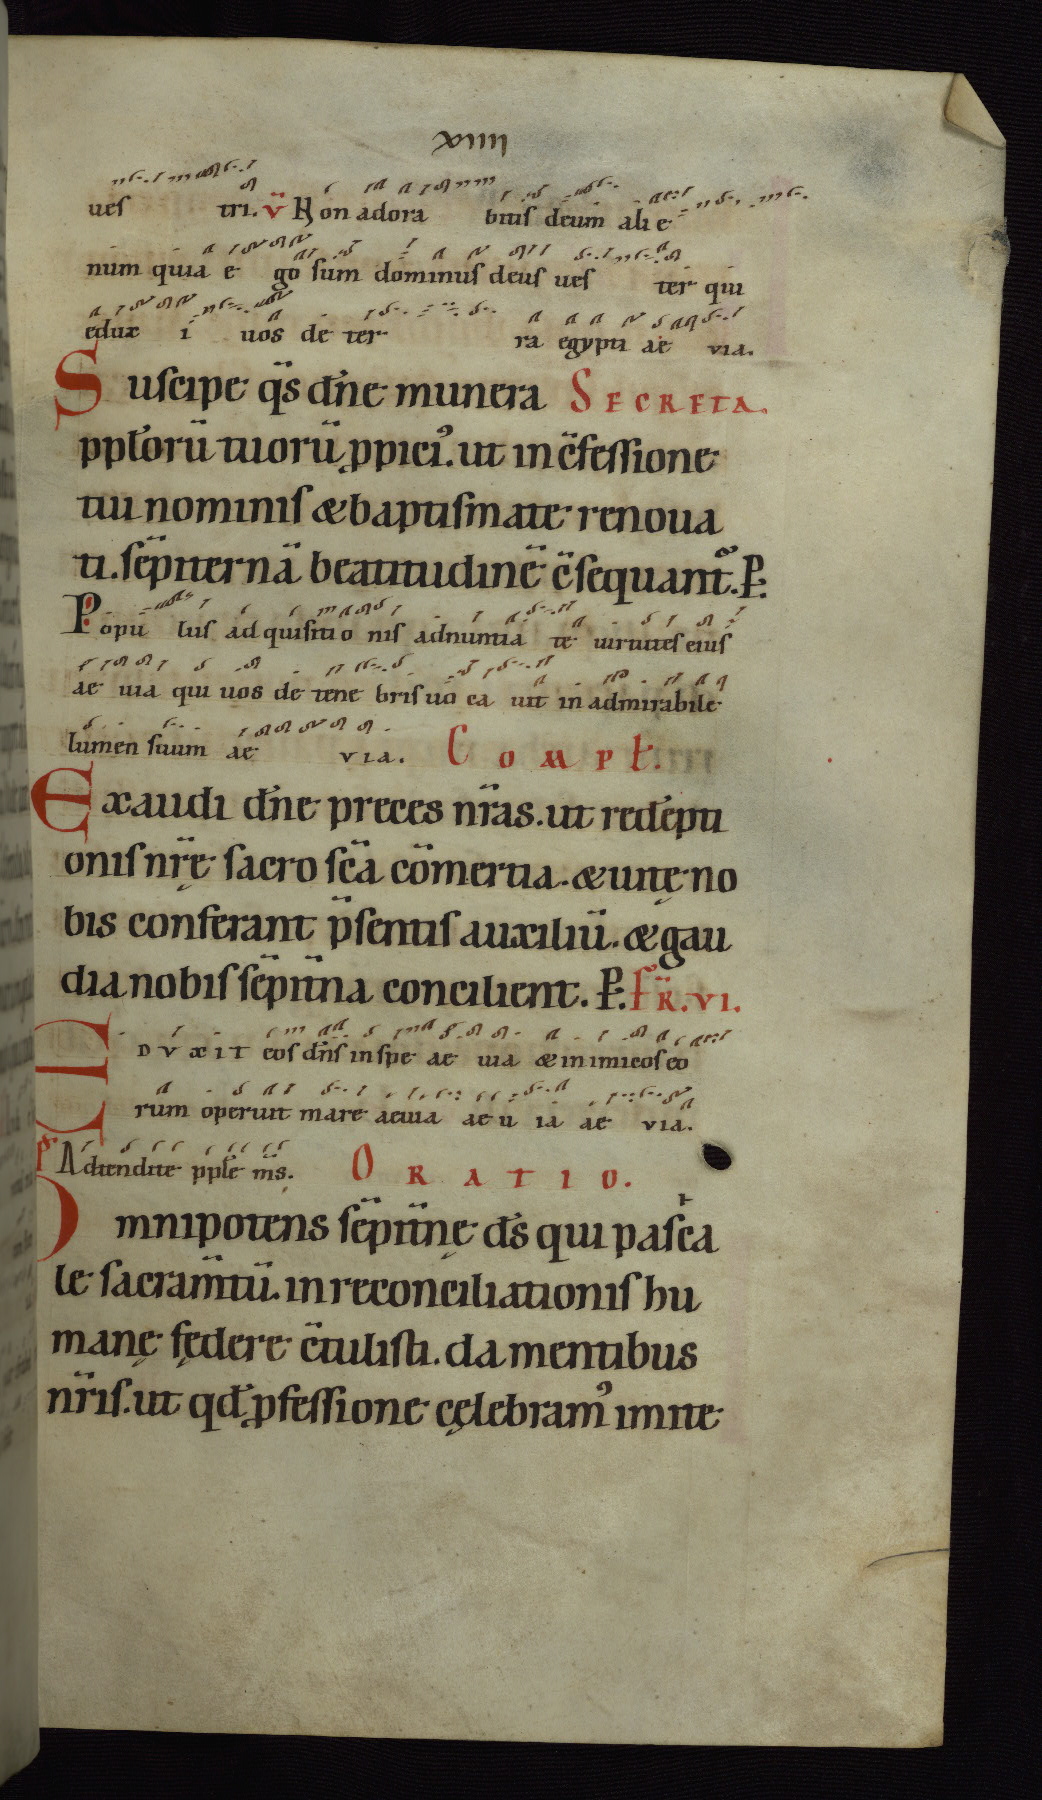 xiiii
ues tri. v̄ Non adora bitis deum ali e
num quia e go sum dominus deus ues ter qui
edux i uos de ter ra egypti ae via.
Suscipe q̄s dn̄e munera SECRETA.
ppłorū tuorū ꝓpici᾿. ut in c̄fessione
tui nominis & baptismate renoua
ti. sēpiternā beatitudinē c̄sequant᷑. P.
Popu lus adquisitio nis adnuntia te uirtutes eius
ae uia qui uos de tene bris uo ca uit in admirabile
lumen suum ae via. COMPł.
Exaudi dn̄e preces nr̄as. ut redēpti
onis nr̄ę sacro scā cōmertia. & uitę no
bis conferant p̄sentis auxiliū. & gau
dia nobis sēpit̄na concilient. P. FR̄. VI.
EDVXIT eos dn̄s in spe ae uia & inimicos eo
rum operuit mare aeuia ae u ia ae via.
ps Adtendite pple ms̄. ORATIO.
Omnipotens sēpit̄nę ds̄ qui pasca
le sacram̄tū. in reconciliationis hu
manę fędere c̄tulisti. da mentibus
nr̄is. ut qđ ꝓfessione cęlebram᾿ imite